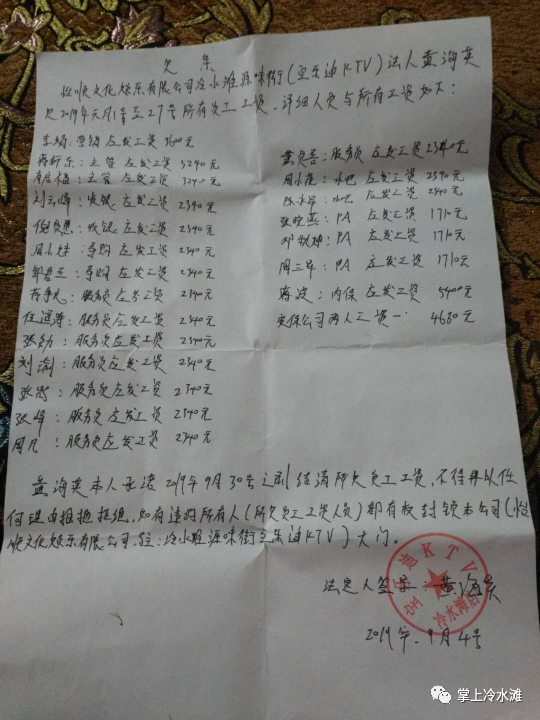 欠条
怡悦文化娱乐有限公司冷水滩源味街(宝乐迪KTV)法人黄海英
欠2019年元月1号至27号所有员工工资,详细人员与所有工资如下:
李娟:营销 应发工资 3600元
蒋新乐:主管 应发工资 3240元
主管 应发工资 3240元
刘云峰:收银 应发工资 2340元
收银 应发工资 2340元
周小妹:导购 应发工资 2340元
邹君兰:导购 应发工资 2340元
服务员 应发工资 2340元
任谊涛:服务员 应发工资 2340元
张勃:服务员 应发工资 2340元
刘湘:服务员 应发工资 2340元
服务员 应发工资 2340元
张峰:服务员 应发工资 2340元
周凡:服务员 应发工资 2340元
服务员 应发工资 2340元
周小花:水吧 应发工资 2340元
水吧 应发工资 2340元
张晓燕:PA 应发工资 1710元
PA 应发工资 1710元
周三年:PA 应发工资 1710元
蒋波:内保 应发工资 5400元
安保公司两人工资一 4680元
黄海英本人承诺2019年9月30号之前结清所欠员工工资,不得再以任
何理由推拖抵赖,如有违约所有人(所欠员工工资人员)都有权封锁本公司(怡
悦文化娱乐有限公司,冷水滩源味街宝乐迪KTV)大门。
法定人签字:黄海英
宝乐迪KTV
冷水滩店
2019年.9月4号
掌上冷水滩